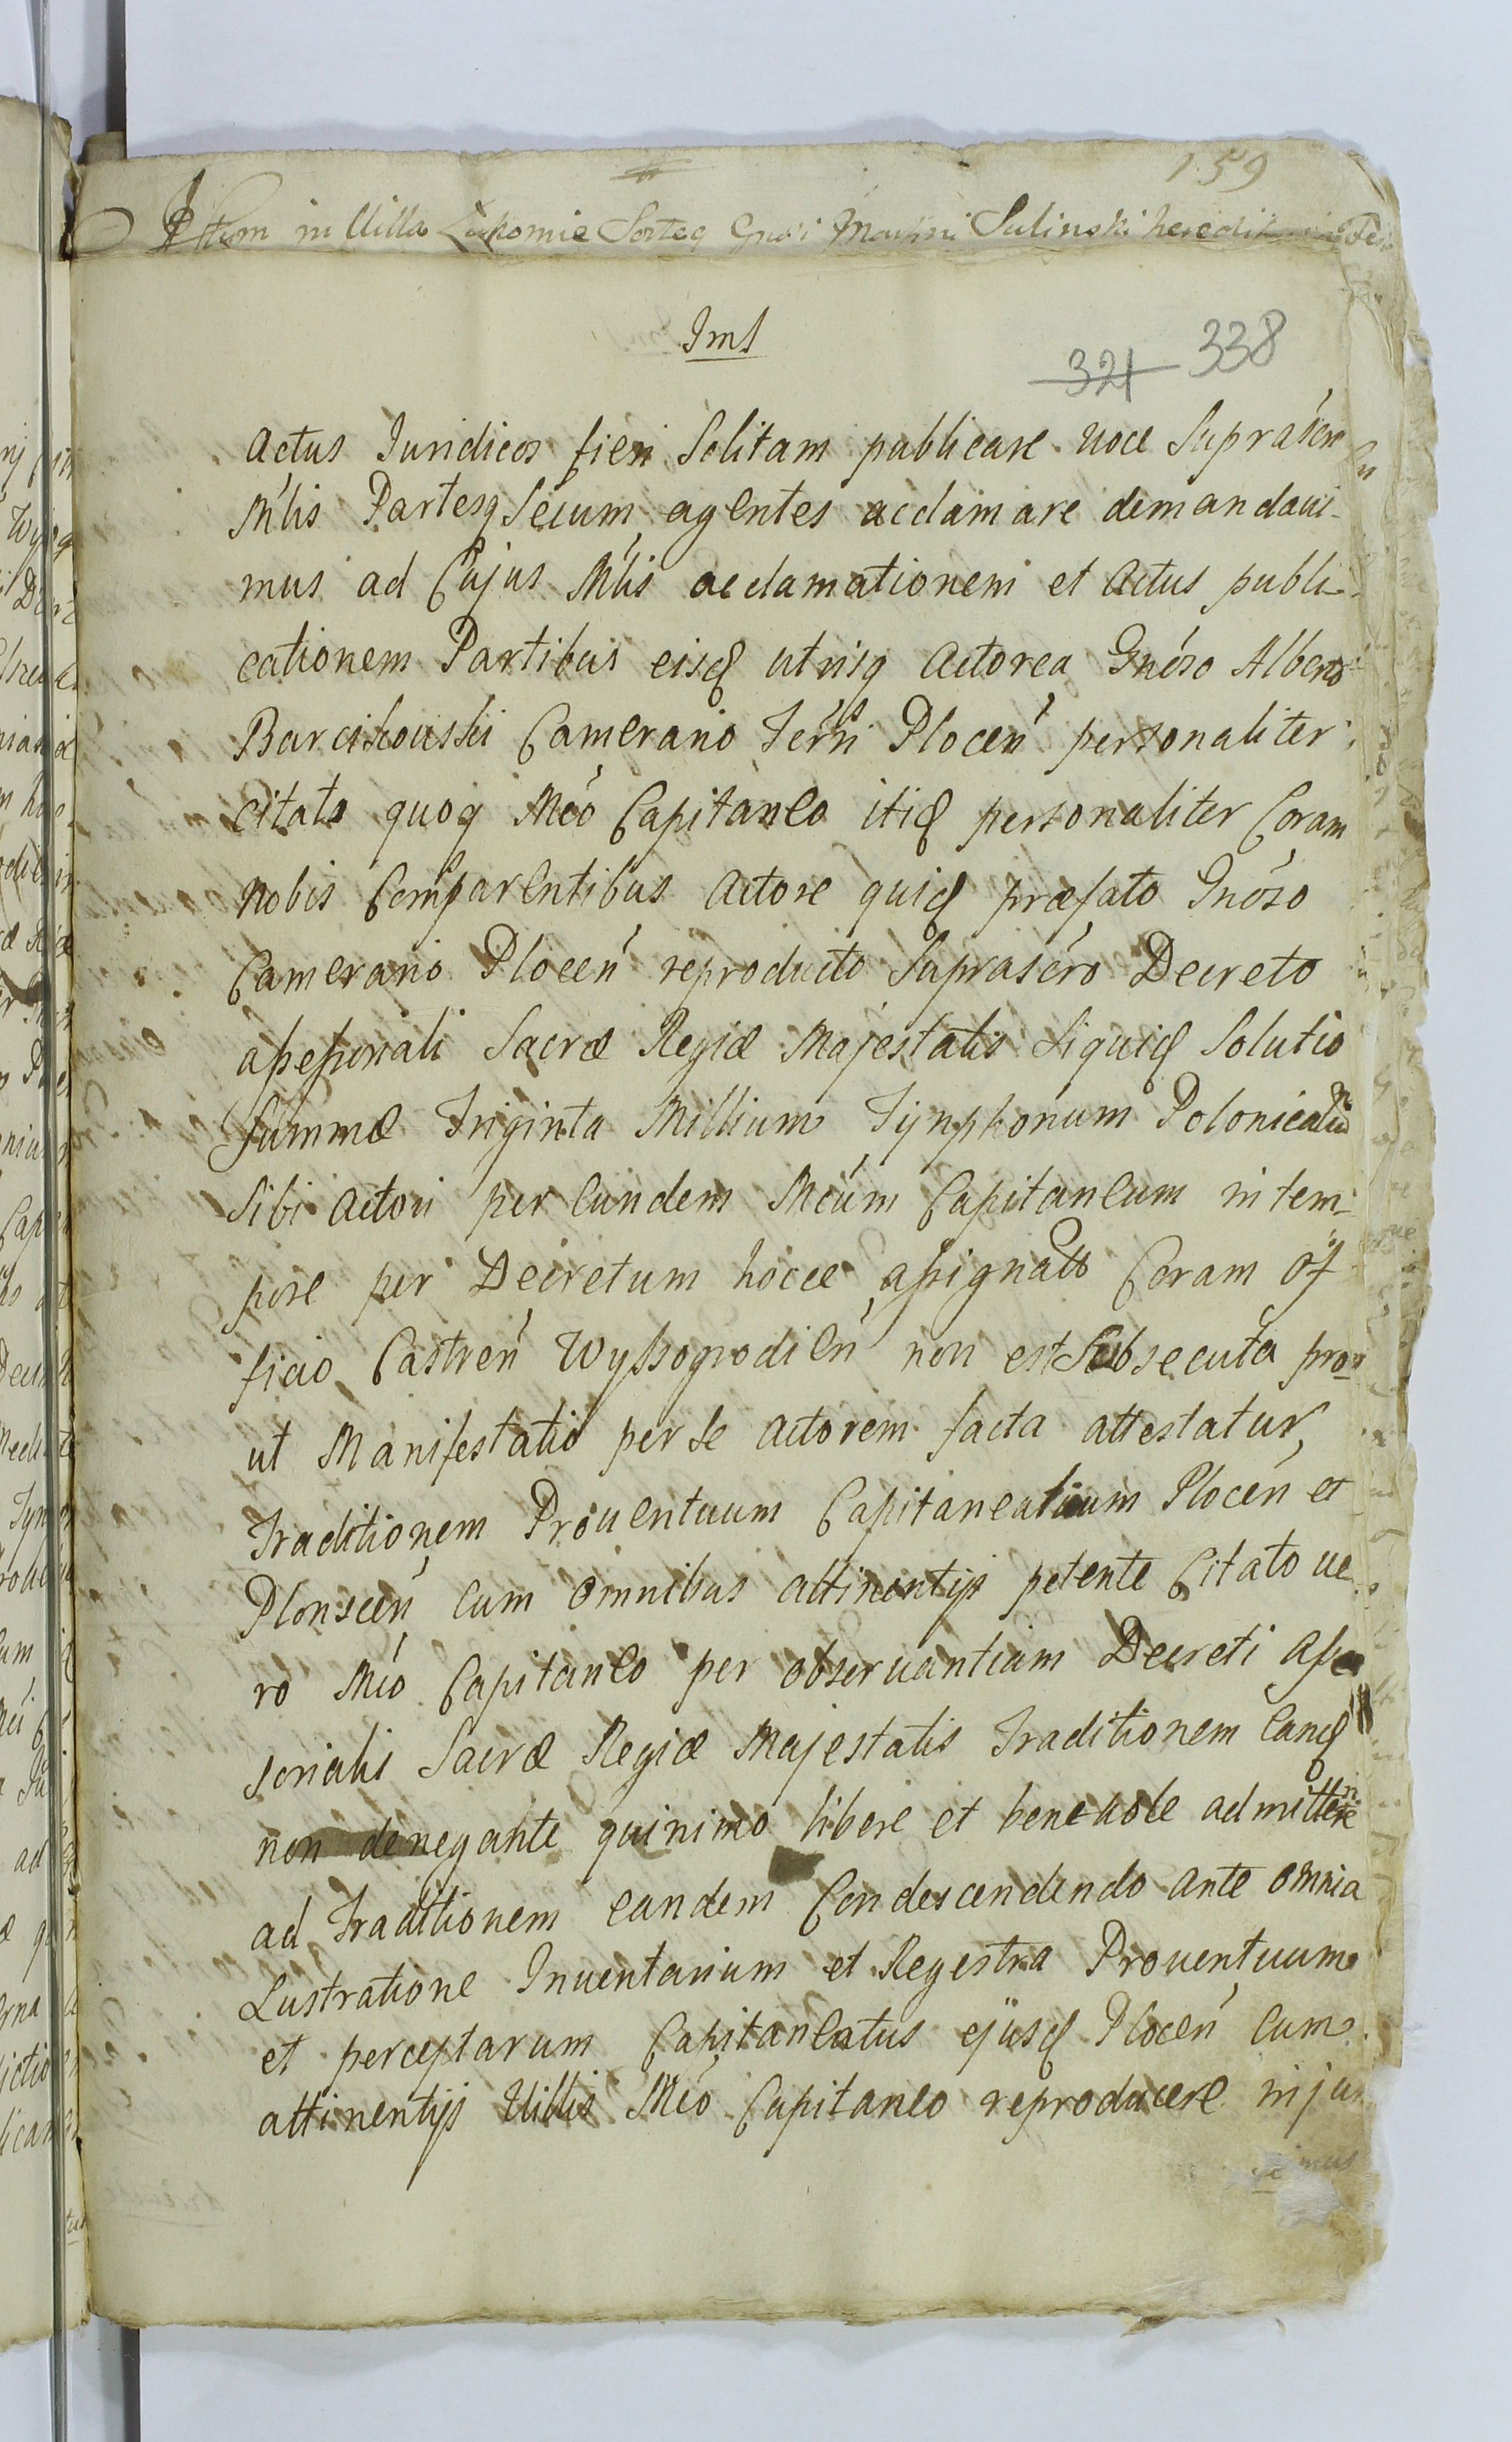 159
Actum in Uilla Łukomie Sorteq Gnosi Martini Sulinski heredit
Jms
321 338
Actus Juridicos fieri Solitam publicare uoce Suprascr
Mlis Partesq Secum agentes acclamare demandaui-
mus ad Cujus Mlis acclamationem et Actus publi-
cationem Partibus eisd utrisq Actorea Gnóso Alberto
Barcikouski Camerario Terrs Plocen personaliter
citata quoq Mco Capitaneo itid personaliter Coram
nobis Comparentibus Actore quid præfato Gnóso
Camerario Plocen reproducto Suprascro Decreto
assessoriali Sacræ Regiæ Majestatis Siquid Solutio
Summæ Triginta Millium Tynphonum Polonicaliu
Sibi Actori per Eundem Mcum Capitaneum in tem-
pore per Decretum hocce assignato Coram Of
ficio Castren Wyssogrodien non est Subsecuta pro-
ut Manifestatio per Se Actorem facta attestatur,
Traditionem Prouentuum Capitanealium Plocen et
Plonscen Cum Omnibus attinentijs petente Citato ue
ro Mco Capitaneo per obseruantiam Decreti asse
sorialis Sacræ Regiæ Majestatis Traditionem Eand
non denegante quinimo libere et beneuole admittere
ad Traditionem eandem Condescendendo ante omnia
Lustratione Inuentarium et Regestra Prouentuum
et perceptarum Capitaneatus ejusd Plocen Cum
attinentijs Uillis Mco Capitaneo reproducere injun
mus